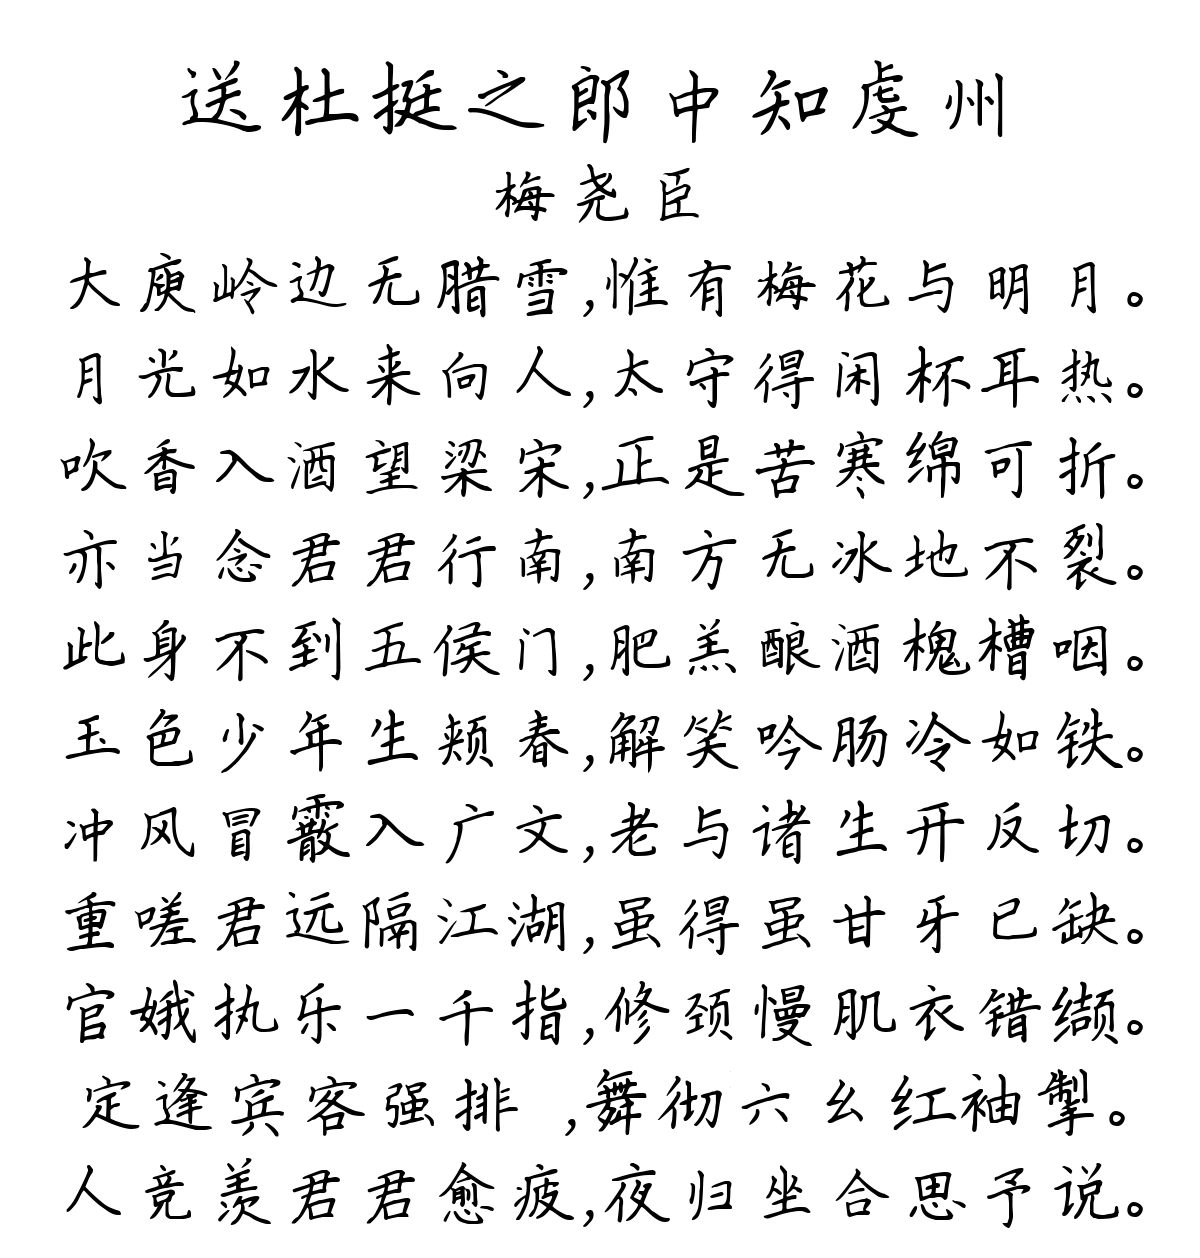 送杜挺之郎中知虔州
梅尧臣
大庾岭边无腊雪,惟有梅花与明月。
月光如水来向人,太守得闲杯耳热。
吹香入酒望梁宋,正是苦寒绵可折。
亦当念君君行南,南方无冰地不裂。
此身不到五侯门,肥羔酿酒槐槽咽。
玉色少年生颊春,解笑吟肠冷如铁。
冲风冒霰入广文,老与诸生开反切。
重嗟君远隔江湖,虽得虽甘牙已缺。
官娥执乐一千指,修颈慢肌衣错缬。
定逢宾客强排 ,舞彻六幺红袖掣。
人竞羡君君愈疲,夜归坐合思予说。